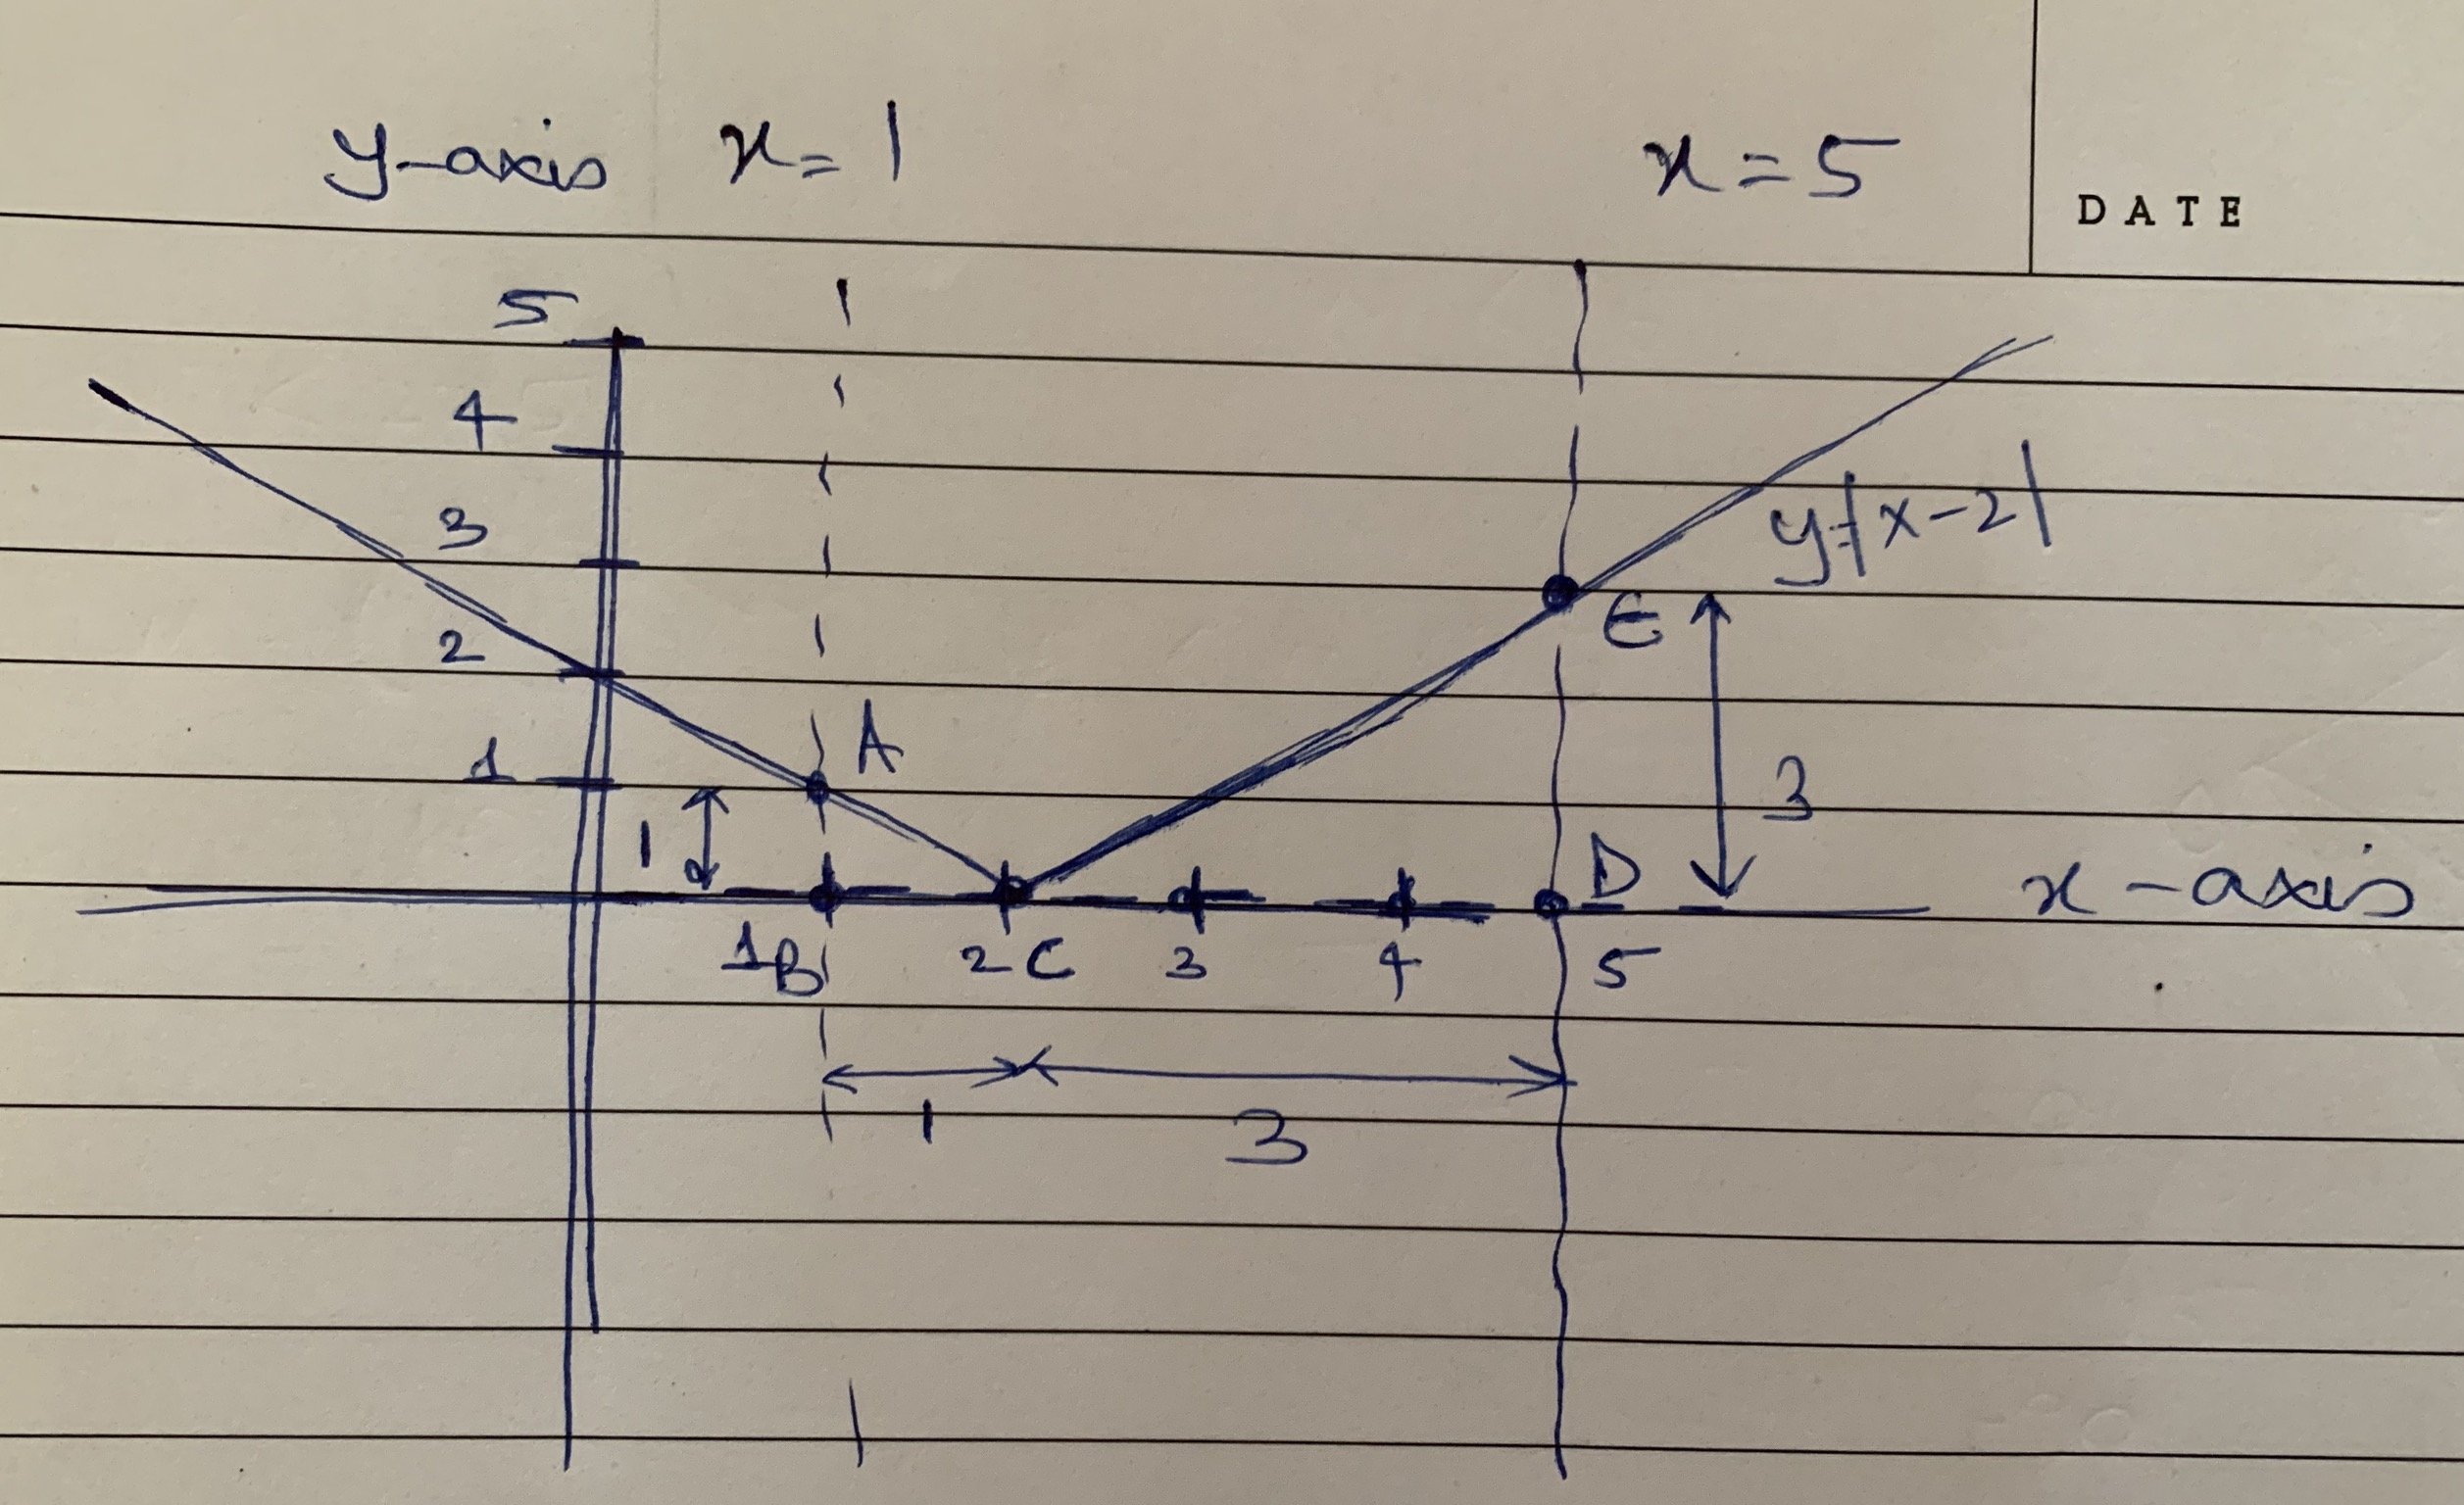 y-axis x=1 x=5
DATE
5
4
3
y=|x-2|
E
2
A
1
3
1
D
x-axis
1B 2C 3 4 5
1 3